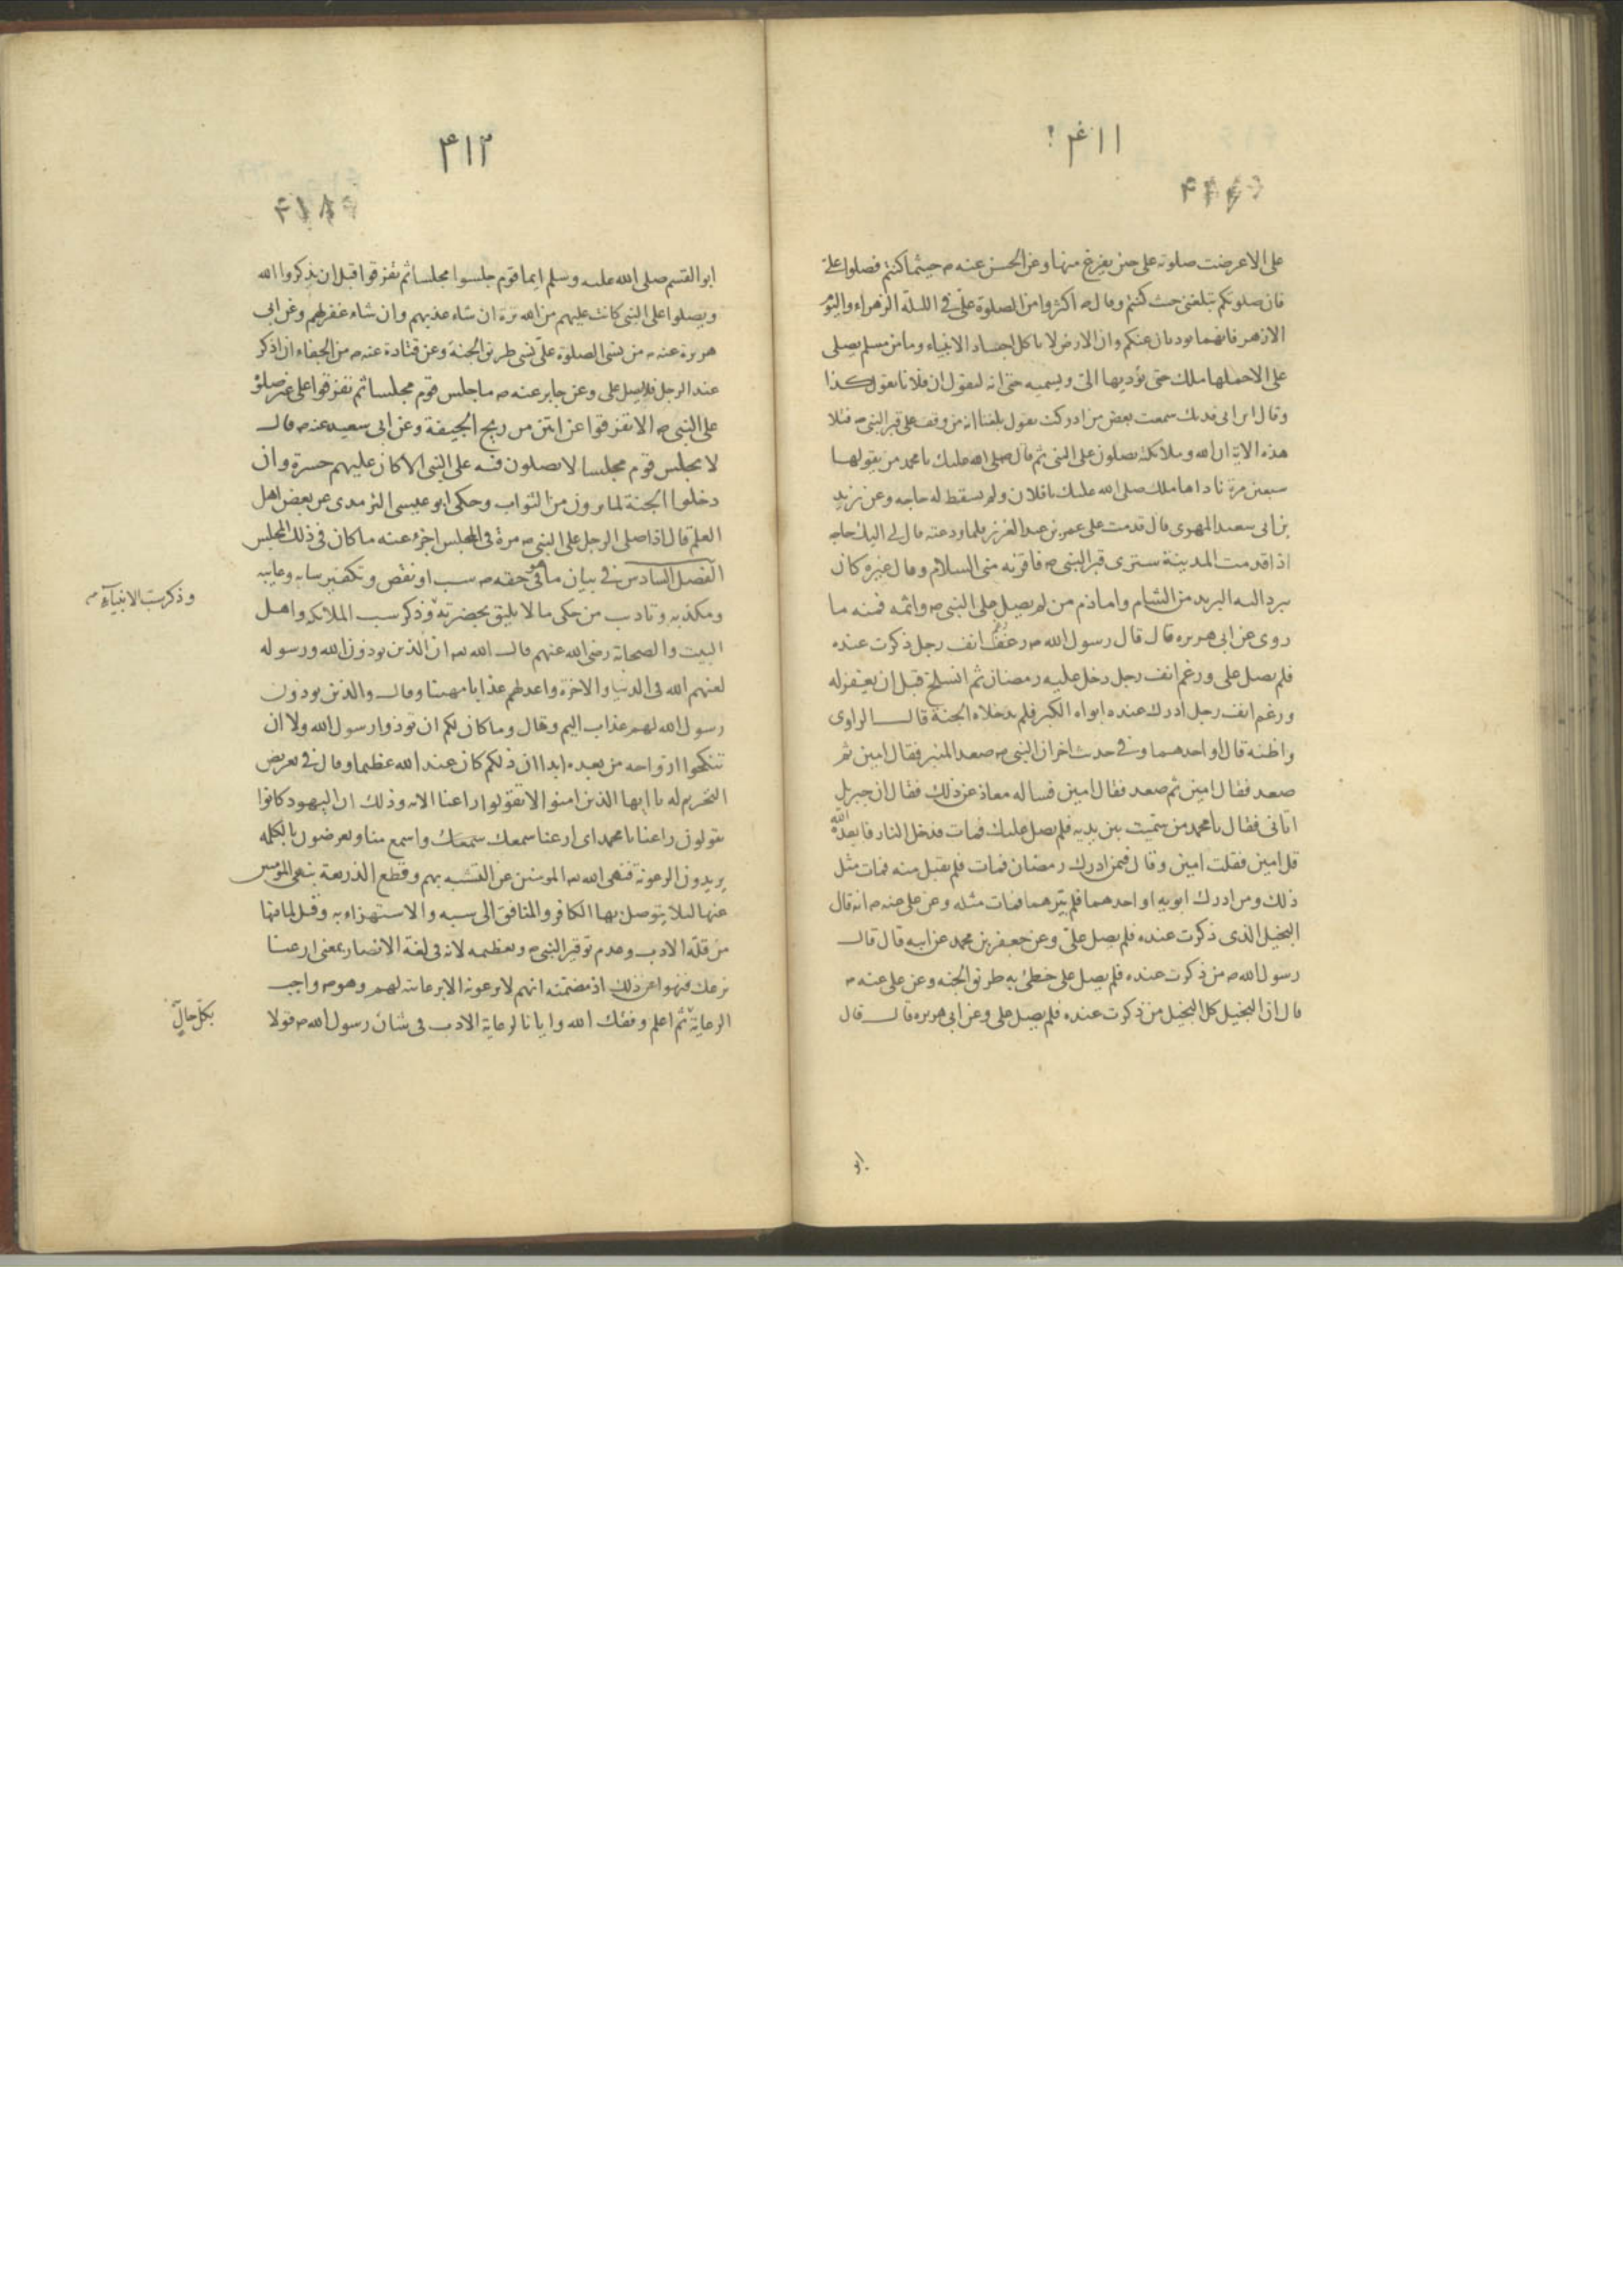 ٤١١
على الا عرضت صلوته على حين يفرغ منها وعن الحسن عنه ص حيثما كنتم فصلوا على
فان صلوتكم تبلغني حيث كنتم وقال ص اكثروا من الصلوة على في الليلة الزهراء واليوم
الازهر فانهما يوديان عنكم وان الارض لا ياكل اجساد الانبياء وما من مسلم يصلى
على الا حملها ملك حتى يؤديها الى ويسميه حتى انه ليقول ان فلانا يقول كذا
وقال ابن ابى فديك سمعت بعض من ادركت يقول بلغنا انه من وقف على قبر النبى ص فتلا
هذه الاية ان الله وملائكته يصلون على النبى ثم قال صلى الله عليك يا محمد من يقولها
سبعين مرة ناداها ملك صلى الله عليك يا فلان ولم يسقط له حاجه وعن يزيد
بن ابى سعيد المهرى قال قدمت على عمر بن عبد العزيز فلما ودعته قال لى اليك حاجه
اذا قدمت المدينة سترى قبر النبى ص فاقرئه منى السلام وقال غيره كان
يبرد اليه البريد من الشام واما ذم من لم يصل على النبى ص واثمه فمنه ما
روى عن ابى هريره قال قال رسول الله ص رغم انف رجل ذكرت عنده
فلم يصل على ورغم انف رجل دخل عليه رمضان ثم انسلخ قبل ان يغفر له
ورغم انف رجل ادرك عنده ابواه الكبر فلم يدخلاه الجنة قال الراوى
واظنه قال او احدهما وفى حديث اخر ان النبى ص صعد المنبر فقال امين ثم
صعد فقال امين ثم صعد فقال امين فساله معاذ عن ذلك فقال ان جبريل
اتانى فقال يا محمد من سميت بين يديه فلم يصل عليك فمات فدخل النار فابعده الله
قل امين فقلت امين وقال فيمن ادرك رمضان فمات فلم يقبل منه فمات مثل
ذلك ومن ادرك ابويه او احدهما فلم يبرهما فمات مثله وعن على عنه ص انه قال
البخيل الذى ذكرت عنده فلم يصل على وعن جعفر بن محمد عن ابيه قال قال
رسول الله ص من ذكرت عنده فلم يصل على خطئ به طريق الجنه وعن على عنه ص
قال ان البخيل كل البخيل من ذكرت عنده فلم يصل على وعن ابى هريره قال قال
ابو
٤١٢
ابو القسم صلى الله عليه وسلم ايما قوم جلسوا مجلسا ثم تفرقوا قبل ان يذكروا الله
ويصلوا على النبى كانت عليهم من الله ترة ان شاء عذبهم وان شاء غفر لهم وعن ابى
هريرة عنه ص من نسى الصلوة على نسى طريق الجنة وعن قتادة عنه ص من الجفاء ان اذكر
عند الرجل فلا يصل على وعن جابر عنه ص ما جلس قوم مجلسا ثم تفرقوا على غير صلوة
على النبى ص الا تفرقوا عن انتن من ريح الجيفة وعن ابى سعيد عنه ص قال
لا يجلس قوم مجلسا لا يصلون فيه على النبى الا كان عليهم حسرة وان
دخلوا الجنة لما يرون من الثواب وحكى ابو عيسى الترمدى عن بعض اهل
العلم قال اذا صلى الرجل على النبى ص مرة فى المجلس اجزء عنه ما كان فى ذلك المجلس
الفصل السادس فى بيان ما فى حقه ص سب او نقص وتكفير سابه وعايبه
ومكذبه وتاديب من حكى ما لا يليق بحضرته وذكر سب الملائكه واهل
وذكر سب الانبياء ص
البيت والصحابة رضى الله عنهم قال الله تعه ان الذين يوذون الله ورسوله
لعنهم الله فى الدنيا والاخرة واعد لهم عذابا مهينا وقال والذين يوذون
رسول الله لهم عذاب اليم وقال وما كان لكم ان توذوا رسول الله ولا ان
تنكحوا ازواجه من بعده ابدا ان ذلكم كان عند الله عظيما وقال فى تعريض
التحريم له يا ايها الذين امنوا لا تقولوا راعنا الايه وذلك ان اليهود كانوا
يقولون راعنا يا محمد اى ارعنا سمعك واسمع منا ويعرضون بالكلمه
يريدون الرعونة فنهى الله تعه المومنين عن التشبه بهم وقطع الذريعة بنهى المومنين
عنها لئلا يتوصل بها الكافر والمنافق الى سبه والاستهزاء به وقيل لما فيها
من قلة الادب وعدم توقير النبى ص وتعظيمه لانه فى لغة الانصار بمعنى ارعنا
نرعك فنهوا عن ذلك اذ مضمنه انهم لا يرعونه الا برعايته لهم وهو ص واجب
الرعاية ثم اعلم وفقك الله وايانا لرعاية الادب فى شان رسول الله ص قولا
بكل حال